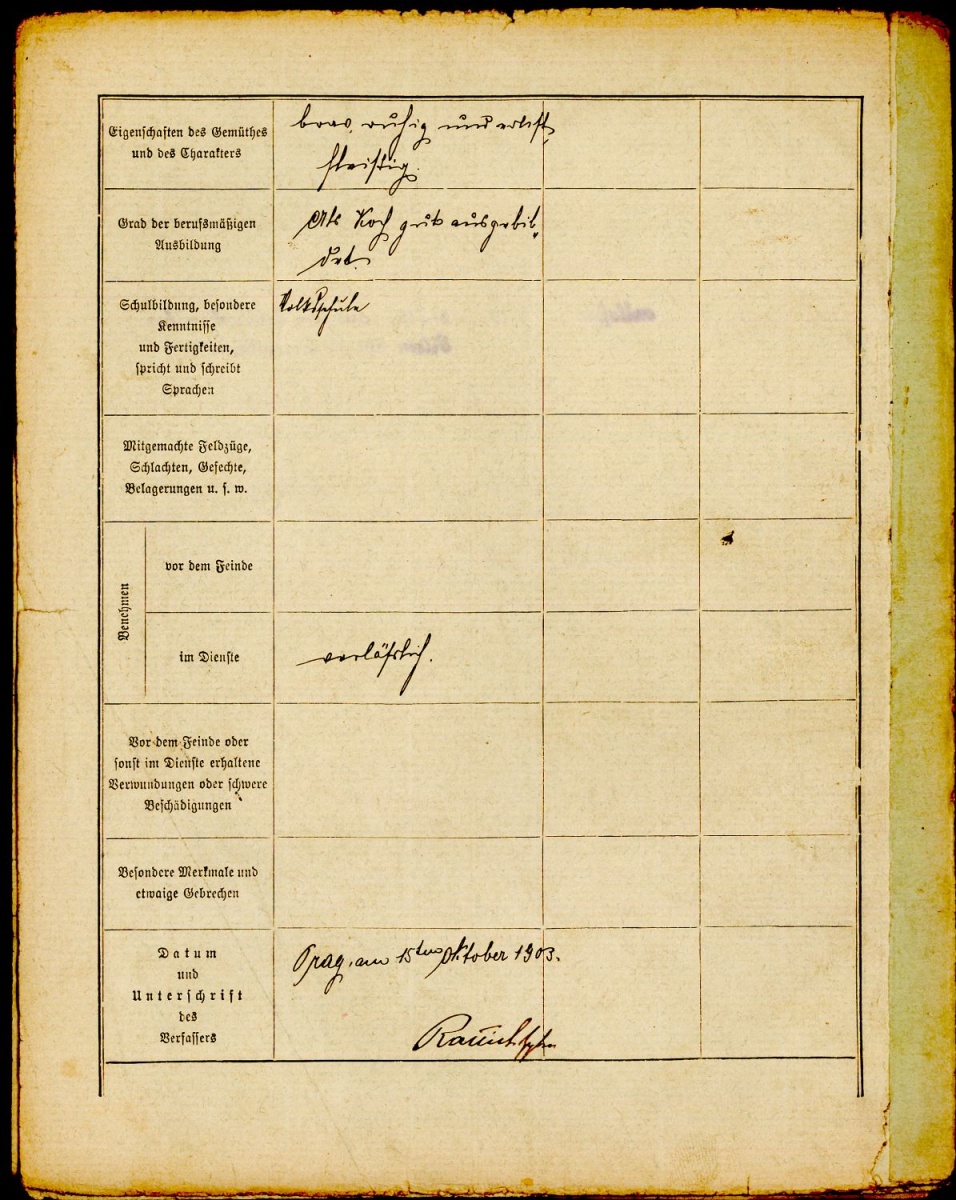 Eigenschaften des Gemüthes
und des Charakters
brav, ruhig und
fleißig.
Grad der berufsmäßigen
Ausbildung
Als Koch gut ausgebil-
det.
Schulbildung, besondere
Kenntnisse
und Fertigkeiten,
spricht und schreibt
Sprachen
Volksschule
Mitgemachte Feldzüge,
Schlachten, Gefechte,
Belagerungen u. s. w.
Benehmen
vor dem Feinde
im Dienste
verläßlich.
Vor dem Feinde oder
sonst im Dienste erhaltene
Verwundungen oder schwere
Beschädigungen
Besondere Merkmale und
etwaige Gebrechen
Datum
und
Unterschrift
des
Verfassers
Prag, am 15ten Oktober 1903.